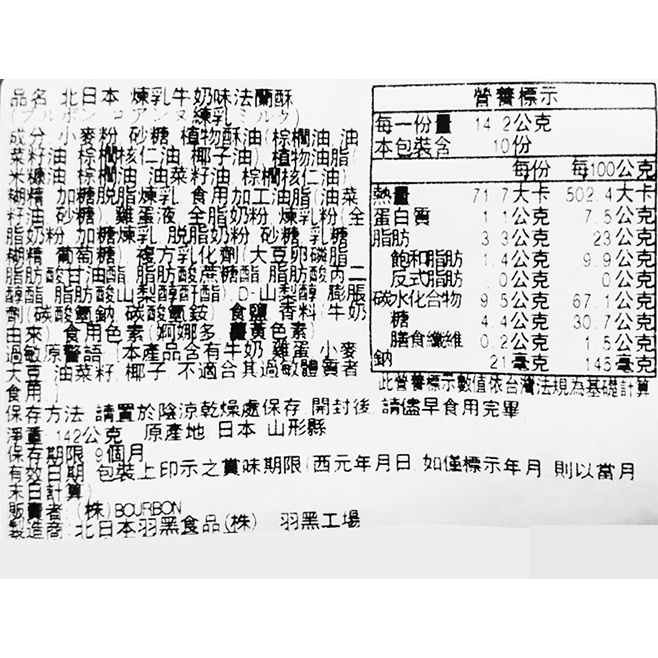 品名 北日本 煉乳牛奶味法蘭酥
(ブルボン コアンヌ練乳ミルク)
成分 小麥粉 砂糖 植物酥油(棕櫚油 油
菜籽油 棕櫚核仁油 椰子油) 植物油脂(
米糠油 棕櫚油 油菜籽油 棕櫚核仁油)
糊精 加糖脱脂煉乳 食用加工油脂(油菜
籽油 砂糖) 雞蛋液 全脂奶粉 煉乳粉(全
脂奶粉 加糖煉乳 脱脂奶粉 砂糖 乳糖
糊精 葡萄糖) 複方乳化劑(大豆卵磷脂
脂肪酸甘油酯 脂肪酸蔗糖酯 脂肪酸丙二
醇酯 脂肪酸山梨醇酐酯) D-山梨醇 膨脹
劑(碳酸氫鈉 碳酸氫銨) 食鹽 香料(牛奶
由來) 食用色素(婀娜多 薑黃色素)
過敏原警語 (本產品含有牛奶 雞蛋 小麥
大豆 油菜籽 椰子 不適合其過敏體質者
食用)
保存方法 請置於陰涼乾燥處保存 開封後 請儘早食用完畢
淨重 142公克 原產地 日本 山形縣
保存期限 9個月
有效日期 包裝上印示之賞味期限(西元年月日 如僅標示年月 則以當月
末日計算)
販賣者 (株)BOURBON
製造商 北日本羽黑食品(株) 羽黑工場
營養標示
每一份量 14.2公克
本包裝含 10份
每份 每100公克
熱量 71.7大卡 502.4大卡
蛋白質 1.1公克 7.5公克
脂肪 3.3公克 23公克
飽和脂肪 1.4公克 9.9公克
反式脂肪 0公克 0公克
碳水化合物 9.5公克 67.1公克
糖 4.4公克 30.7公克
膳食纖維 0.2公克 1.5公克
鈉 21毫克 145毫克
此營養標示數值依台灣法規為基礎計算